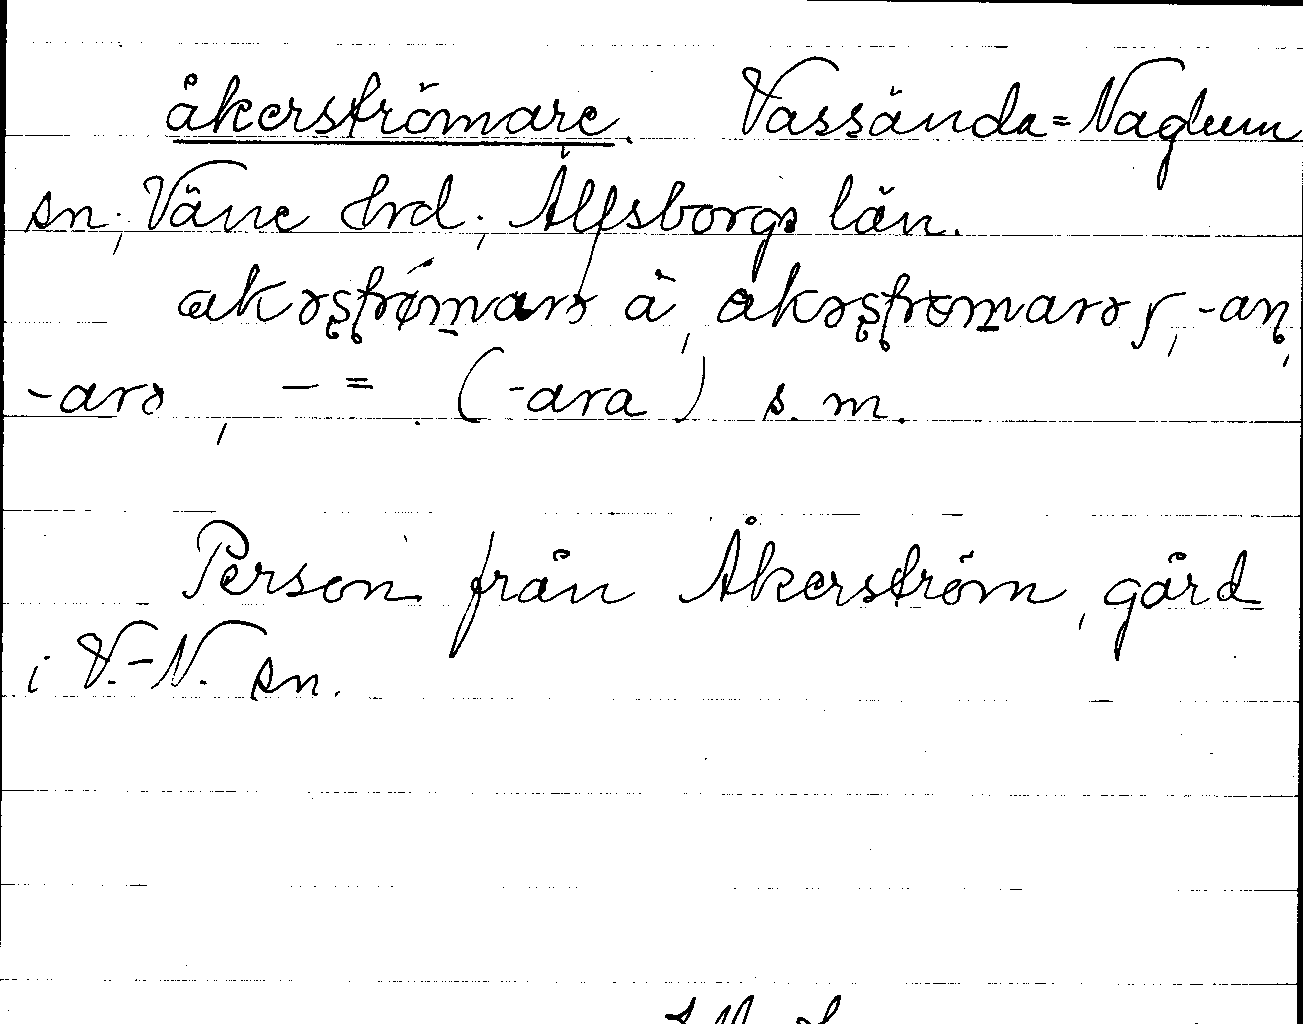 åkerströmare. Vassända=Naglum
sn; Väne hrd; Älfsborgs län.
akəʂʈrømarə à akəʂʈrømarəɾ, -aɳ,
-arə, - = (-ara) s. m.
Person från Åkerström, gård
i V.-N. sn.